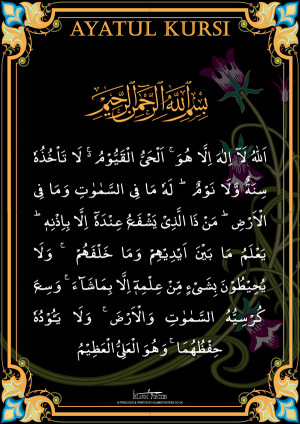 AYATUL KURSI
بِسْمِ اللّٰهِ الرَّحْمٰنِ الرَّحِيْمِ
اَللّٰهُ لَآ اِلٰهَ اِلَّا هُوَ ۚ اَلْحَىُّ الْقَيُّوْمُ ۚ لَا تَاْخُذُهٗ
سِنَةٌ وَّلَا نَوْمٌ ؕ لَهٗ مَا فِى السَّمٰوٰتِ وَمَا فِى
الْاَرْضِ ؕ مَنْ ذَا الَّذِىْ يَشْفَعُ عِنْدَهٗٓ اِلَّا بِاِذْنِهٖ ؕ
يَعْلَمُ مَا بَيْنَ اَيْدِيْهِمْ وَمَا خَلْفَهُمْ ۚ وَلَا
يُحِيْطُوْنَ بِشَىْءٍ مِّنْ عِلْمِهٖٓ اِلَّا بِمَاشَآءَ ۚ وَسِعَ
كُرْسِيُّهُ السَّمٰوٰتِ وَالْاَرْضَ ۚ وَلَا يَـُٔوْدُهٗ
حِفْظُهُمَا ۚ وَهُوَ الْعَلِىُّ الْعَظِيْمُ
ISLAMIC POSTERS